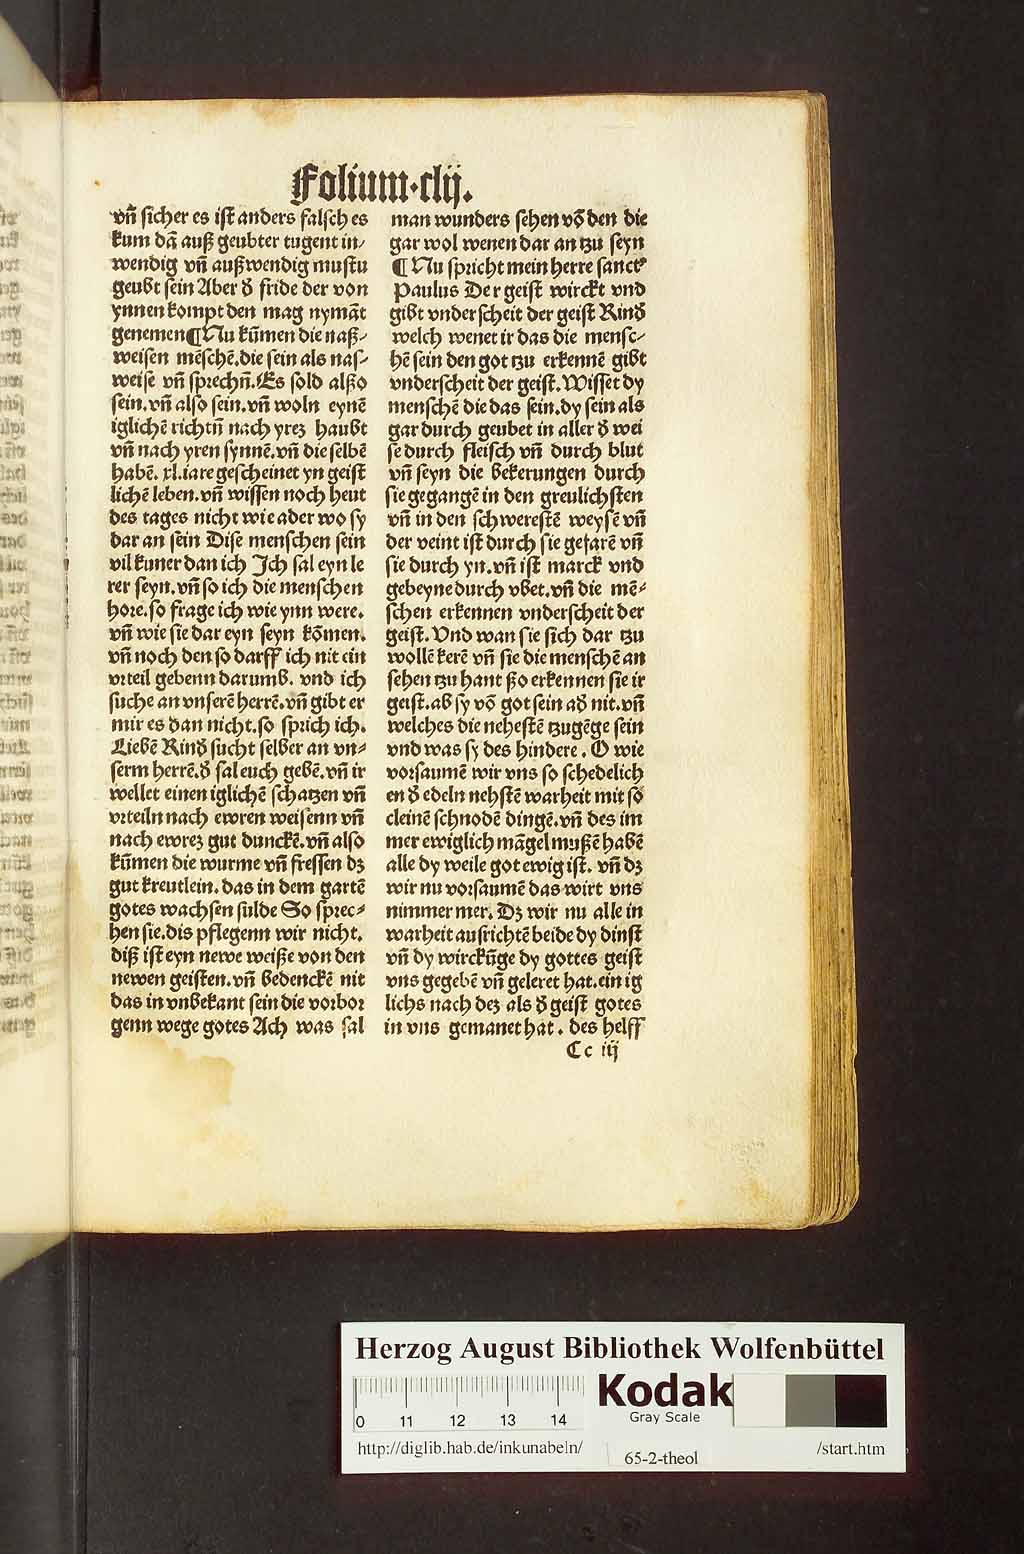 Folium·clij.
vñ sicher es ist anders falsch es
kum dã auß geubter tugent in⸗
wendig vñ außwendig mustu
geubt sein Aber d̕ fride der von
ynnen kompt den mag nymãt
genemen¶Nu kũmen die naß⸗
weisen mẽschẽ.die sein als nas⸗
weise vñ sprechñ.Es sold alßo
sein.vñ also sein.vñ woln eynẽ
iglichẽ richtñ nach yreꝫ haubt
vñ nach yren synnẽ.vñ die selbẽ
habẽ. xl.iare gescheinet yn geist
lichẽ leben.vñ wissen noch heut
des tages nicht wie ader wo sy
dar an sein Dise menschen sein
vil kuner dan ich Jch sal eyn le
rer seyn.vñ so ich die menschen
hore.so frage ich wie ynn were.
vñ wie sie dar eyn seyn kõmen.
vñ noch den so darff ich nit ein
vrteil gebenn darumb. vnd ich
suche an vnserẽ herrẽ.vñ gibt er
mir es dan nicht.so sprich ich.
Liebẽ Kind̕ sucht selber an vn⸗
serm herrẽ.d̕ sal euch gebẽ.vñ ir
wellet einen iglichẽ schatzen vñ
vrteiln nach ewren weisenn vñ
nach ewreꝫ gut dunckẽ.vñ also
kũmen die wurme vñ fressen dꝫ
gut kreutlein. das in dem gartẽ
gotes wachsen sulde So sprec⸗
hen sie.dis pflegenn wir nicht.
diß ist eyn newe weiße von den
newen geisten.vñ bedenckẽ nit
das in vnbekant sein die vorbor
genn wege gotes Ach was sal
man wunders sehen võ den die
gar wol wenen dar an tzu seyn
¶Nu spricht mein herre sanctꝰ
Paulus Der geist wirckt vnd
gibt vnderscheit der geist Kind̕
welch wenet ir das die mensc⸗
hẽ sein den got tzu erkennẽ gibt
vnderscheit der geist.Wisset dy
menschẽ die das sein.dy sein als
gar durch geubet in aller d̕ wei
se durch fleisch vñ durch blut
vñ seyn die bekerungen durch
sie gegangẽ in den greulichsten
vñ in den schwerestẽ weysẽ vñ
der veint ist durch sie gefarẽ vñ
sie durch yn.vñ ist marck vnd
gebeyne durch vbet.vñ die mẽ⸗
schen erkennen vnderscheit der
geist. Vnd wan sie sich dar tzu
wollẽ kerẽ vñ sie die menschẽ an
sehen tzu hant ßo erkennen sie ir
geist.ab sy võ got sein ad̕ nit.vñ
welches die nehestẽ tzugẽge sein
vnd was sy des hindere . O wie
vorsaumẽ wir vns so schedelich
en d̕ edeln nehstẽ warheit mit so
cleinẽ schnodẽ dingẽ.vñ des im
mer ewiglich mãgel mußẽ habẽ
alle dy weile got ewig ist. vñ dꝫ
wir nu vorsaumẽ das wirt vns
nimmer mer. Dꝫ wir nu alle in
warheit ausrichtẽ beide dy dinst
vñ dy wirckũge dy gottes geist
vns gegebẽ vñ geleret hat.ein ig
lichs nach deꝫ als d̕ geist gotes
in vns gemanet hat . des helff
Cc iij
Herzog August Bibliothek Wolfenbüttel
Kodak
Gray Scale
0 11 12 13 14
http://diglib.hab.de/inkunabeln/
65-2-theol
/start.htm